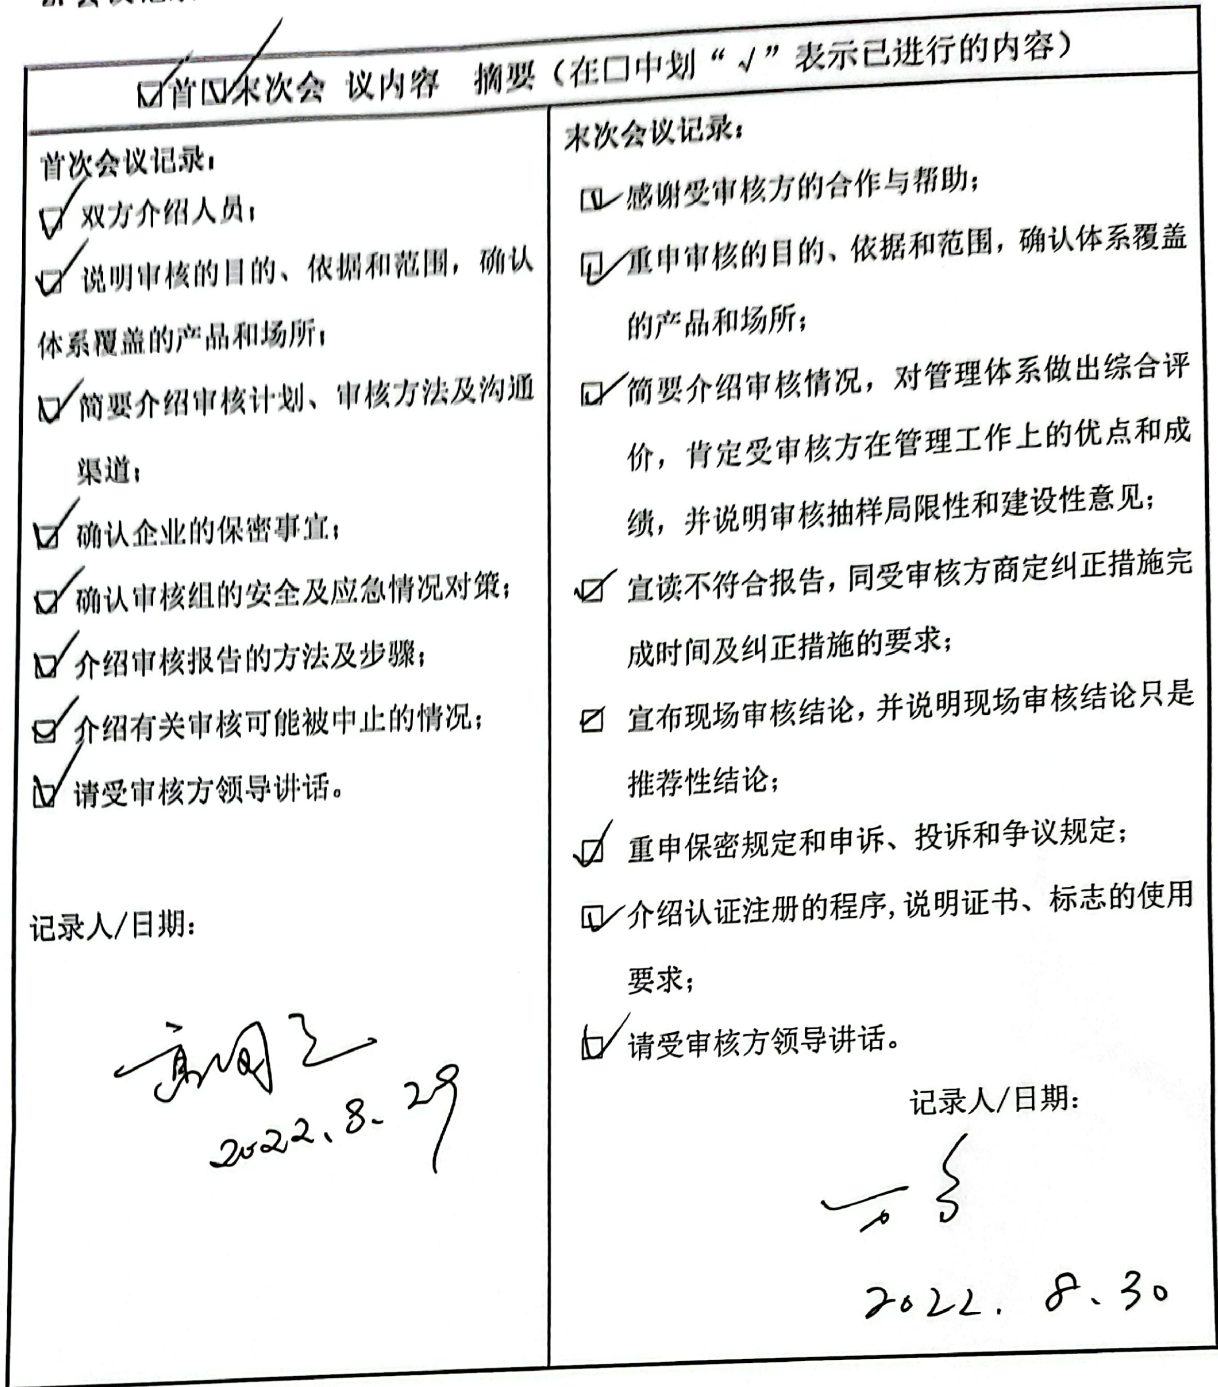 ☑首☑末次会 议内容 摘要（在口中划“√”表示已进行的内容）
首次会议记录：
☑ 双方介绍人员；
☑ 说明审核的目的、依据和范围，确认
体系覆盖的产品和场所；
☑ 简要介绍审核计划、审核方法及沟通
渠道；
☑ 确认企业的保密事宜；
☑ 确认审核组的安全及应急情况对策；
☑ 介绍审核报告的方法及步骤；
☑ 介绍有关审核可能被中止的情况；
☑ 请受审核方领导讲话。
记录人/日期：
2022.8.29
末次会议记录：
☑ 感谢受审核方的合作与帮助；
☑ 重申审核的目的、依据和范围，确认体系覆盖
的产品和场所；
☑ 简要介绍审核情况，对管理体系做出综合评
价，肯定受审核方在管理工作上的优点和成
绩，并说明审核抽样局限性和建设性意见；
☑ 宣读不符合报告，同受审核方商定纠正措施完
成时间及纠正措施的要求；
☑ 宣布现场审核结论，并说明现场审核结论只是
推荐性结论；
☑ 重申保密规定和申诉、投诉和争议规定；
☑ 介绍认证注册的程序，说明证书、标志的使用
要求；
☑ 请受审核方领导讲话。
记录人/日期：
2022.8.30